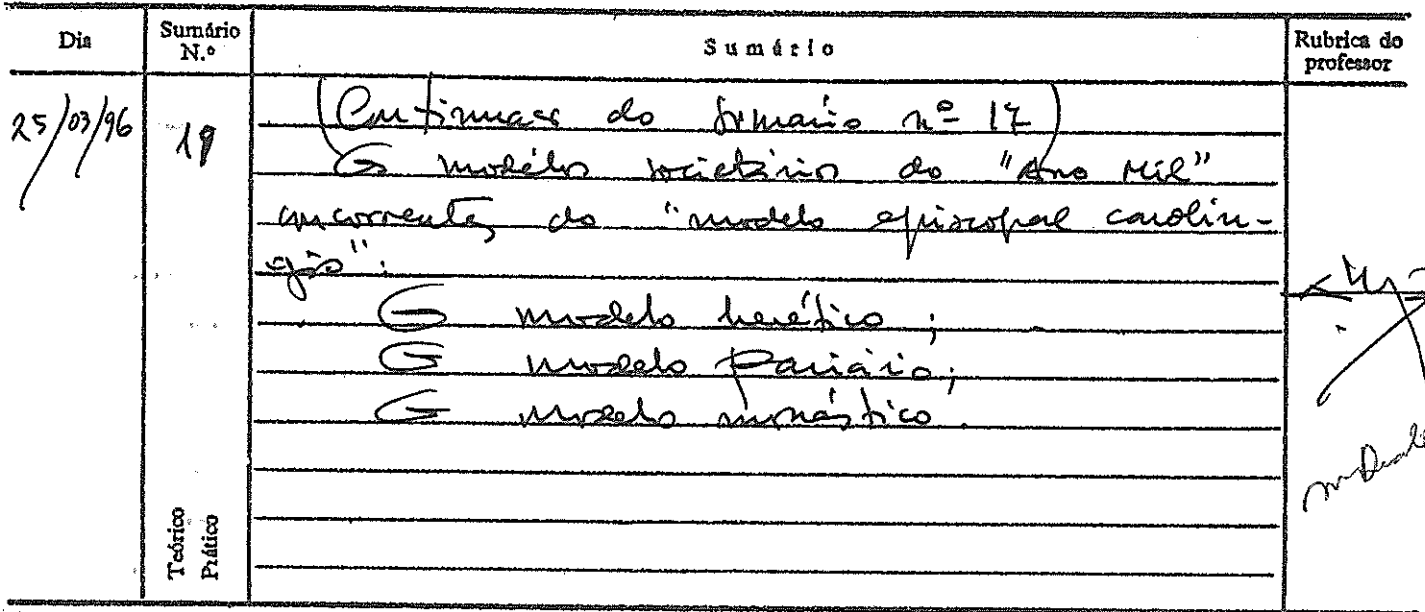 Dia Sumário N.º Sumário Rubrica do professor
25/03/96 19 (Continuação do sumário nº 17)
Os modelos societários do "Ano Mil"
concorrentes do "modelo episcopal carolín-
gio":
O modelo herético;
O modelo
O modelo monástico.
Teórico
Prático